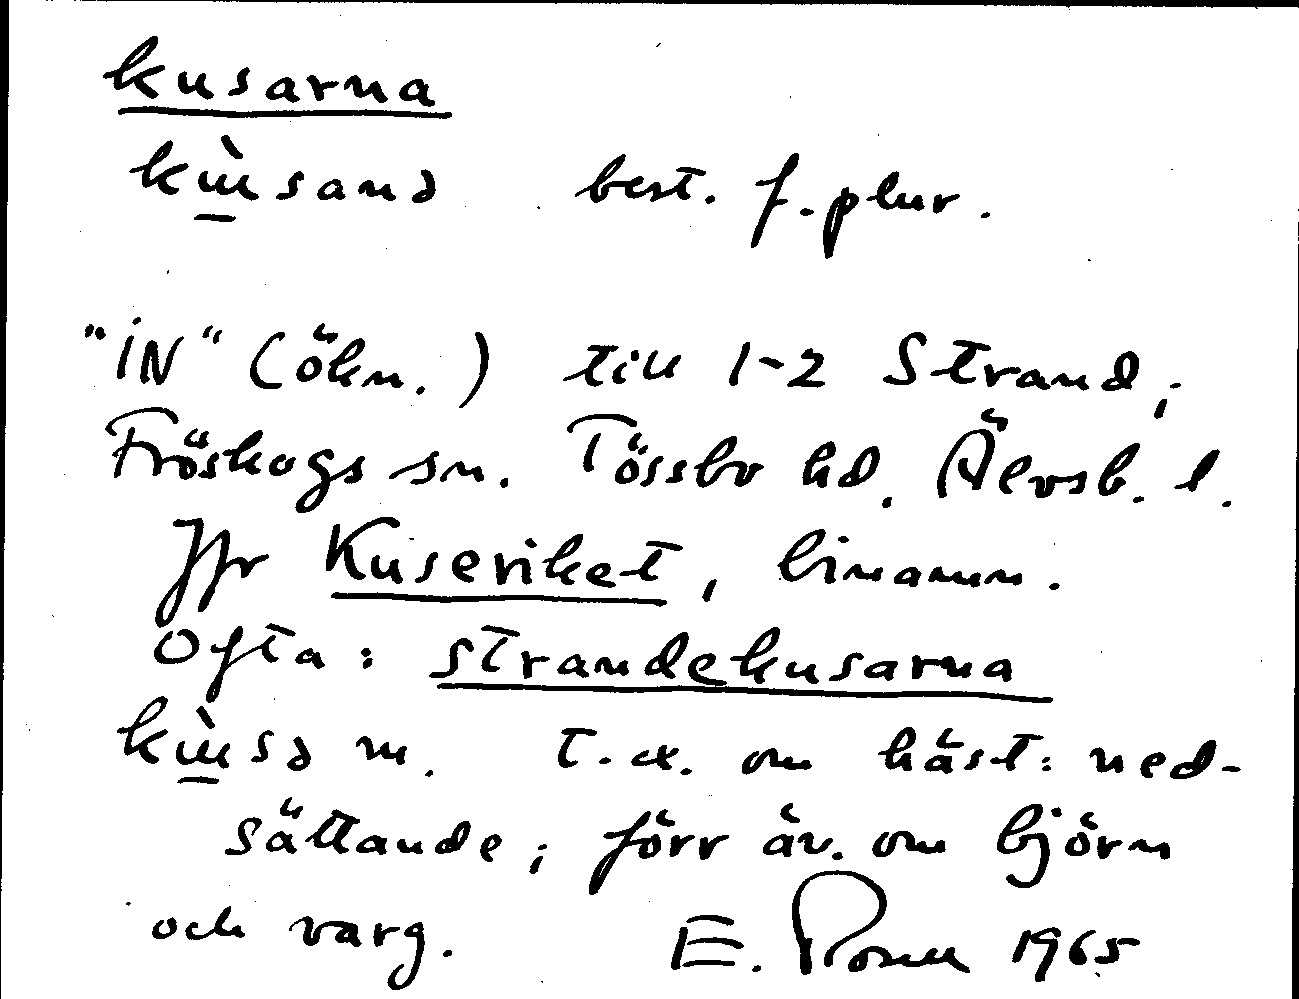 kusarna
kùsanə best. f. plur.
"IN" (ökn.) till 1-2 Strand,
Fröskogs sn. Tössbo hd. Älvsb. l.
Jfr Kuseriket, binamn.
Ofta: strandekusarna
kùsə m. t.ex. om häst: ned-
sättande; förr äv. om björn
och varg. E. 1965